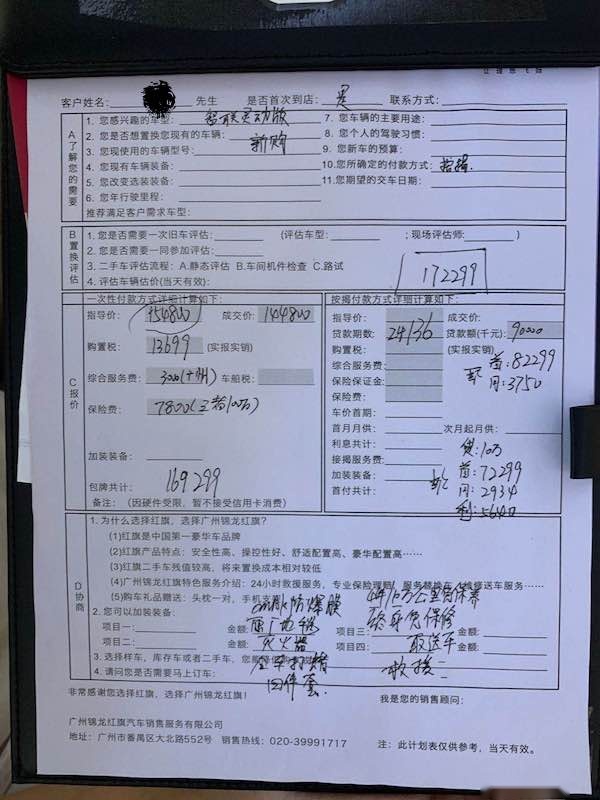 客户姓名： 先生 是否首次到店：是 联系方式：
A了解您的需要
1. 您感兴趣的车型：智联灵动版
2. 您是否想置换您现有的车辆：新购
3. 您现使用的车辆型号：
4. 您现有车辆装备：
5. 您改变选装装备：
6. 您年行驶里程：
推荐满足客户需求车型：
7. 您车辆的主要用途：
8. 您个人的驾驶习惯：
9. 您新车的预算：
10.您所确定的付款方式：按揭
11.您期望的交车日期：
B置换评估
1. 您是否需要一次旧车评估： （评估车型： ；现场评估师： ）
2. 您是否需要一同参加评估：
3. 二手车评估流程：A.静态评估 B.车间机件检查 C.路试
4. 评估车辆估价(当天有效)：
172299
C报价
一次性付款方式详细计算如下：
指导价：154800 成交价：144800
购置税：13699 (实报实销)
综合服务费：3000(广州) 车船税：
保险费：7800(三者100万)
加装装备：
包牌共计：169299
备注：（因硬件受限，暂不接受信用卡消费）
按揭付款方式详细计算如下：
指导价： 成交价：
贷款期数：24/36 贷款额(千元)：90000
购置税： (实报实销)
综合服务费： 首：82299
保险保证金： 月：3750
保险费：
车价首期：
首月月供： 次月起月供：
利息共计： 贷：10万
接揭服务费： 首：72299
加装装备： 月：2934
首付共计： 利：5640
D协商
1. 为什么选择红旗，选择广州锦龙红旗？
(1)红旗是中国第一豪华车品牌
(2)红旗产品特点：安全性高、操控性好、舒适配置高、豪华配置高……
(3)红旗二手车残值较高，将来置换成本相对较低
(4)广州锦龙红旗特色服务介绍：24小时救援服务，专业保险理赔，服务替换车，维修送车服务……
(5)购车礼品赠送：头枕一对，手机支
防爆膜 4年10万公里免保养
2. 您可以加装装备：
终身免保修
项目一： 金额： 项目三： 金额：
项目二： 金额：灭火器 项目四： 金额：取送车
3. 选择样车，库存车或者二手车，您能
救援
4. 请问您是否需要马上订车：
四件套
非常感谢您选择红旗，选择广州锦龙红旗！ 我是您的销售顾问：
广州锦龙红旗汽车销售服务有限公司
地址：广州市番禺区大北路552号 销售热线：020-39991717 注：此计划表仅供参考，当天有效。